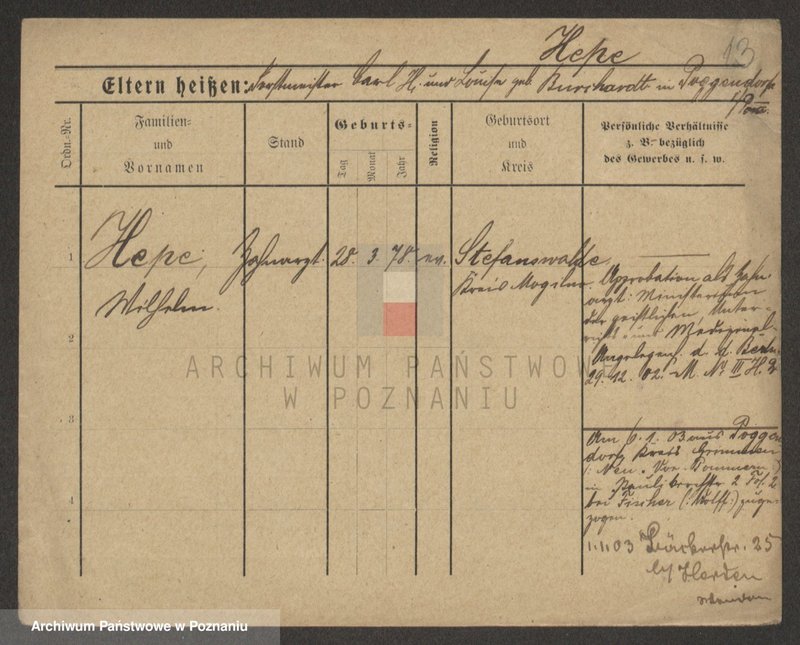 Hepe
13
Eltern heißen: Forstmeister Carl H. und Louise geb. Burchardt in Poggendorf
i/Pom.
Ordn.-Nr.
Familien-
und
Vornamen
Stand
Geburts-
Tag
Monat
Jahr
Religion
Geburtsort
und
Kreis
Persönliche Verhältnisse
z. B. bezüglich
des Gewerbes u. s. w.
1
Hepe,
Wilhelm.
Zahnarzt.
28. 3. 78. ev.
Stefanswalde
Kreis Mogilno.
Approbation als Zahn-
arzt: Ministerium
der geistlichen, Unter-
richts- und Medizinal-
Angelegenh. d. d. Berlin
29. 12. 02. M. Nr. III H. 2
2
3
4
Am 6. 1. 03 aus Poggen-
dorf Kreis Grimmen
(: Neu-Vor-Pommern :)
in
bei Fischer (: Wolff :) zuge-
zogen.
1.4.03 Bäckerstr. 25
bei Herden
ARCHIWUM PAŃSTWOWE
W POZNANIU
Archiwum Państwowe w Poznaniu